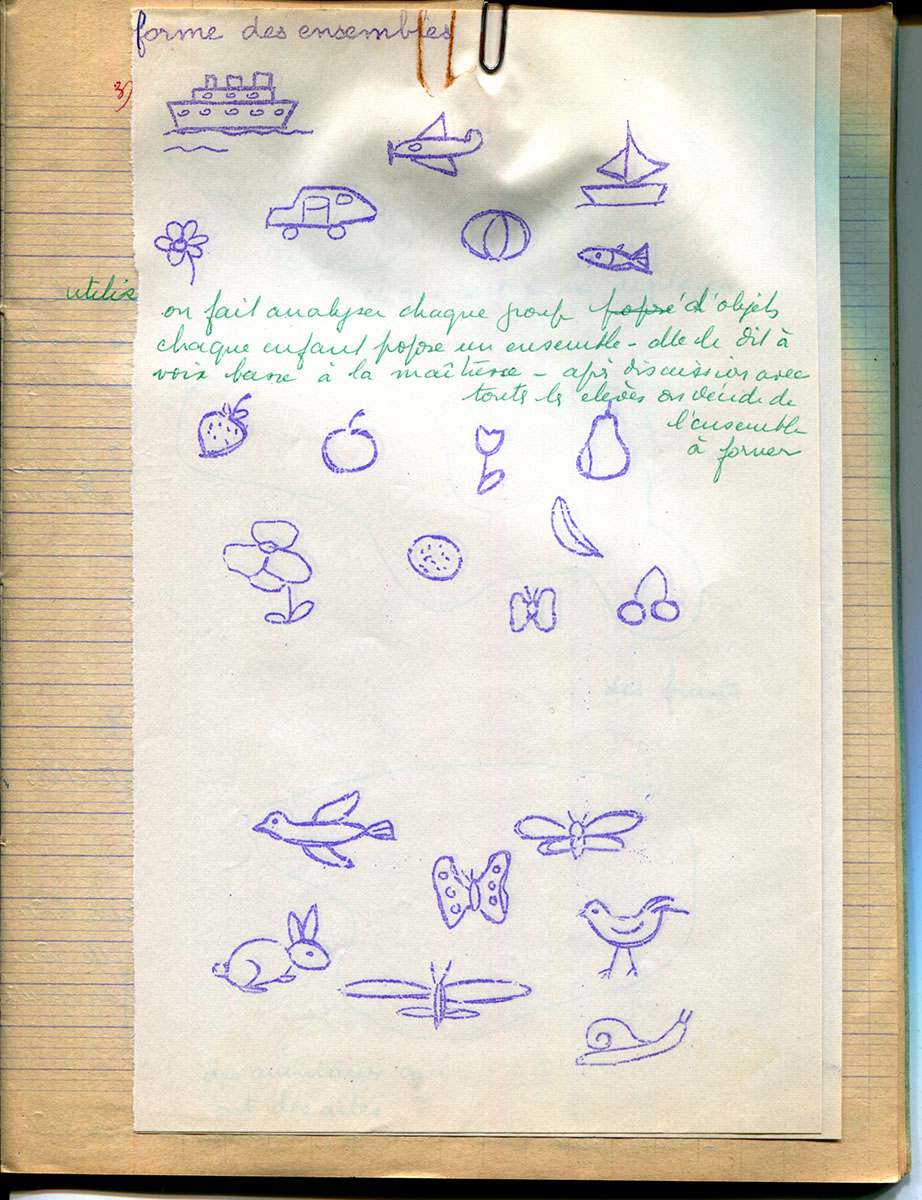 forme des ensembles
3)
utilis
on fait analyser chaque group propose d'objets
chaque enfant propose un ensemble - elle le dit à
voix basse à la maîtresse - après discussion avec
toute les elèves on décide de
l'ensemble
à former
des fruits
des animaux qui
ont des ailes